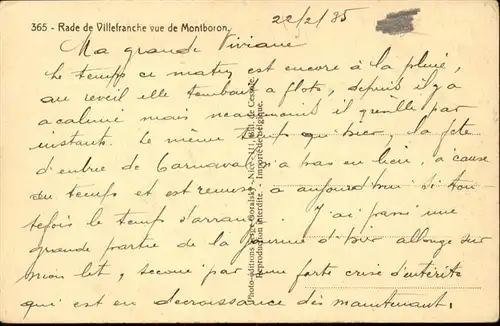 365 - Rade de Villefranche vue de Montboron.
22/2/35
Ma grande Viviane
Le temps ce matin est encore à la pluie,
au reveil elle tombait a flots, depuis il y a
acalmie mais neanmoins il grenille par
instants. Le même temps qu'hier, la fête
d'entrée de Carnaval n'a pas eu lieu, à cause
du temps et est remise à aujourd'hui si tou-
tefois le temps s'arrange. J'ai passé une
grande partie de la journée d'hier allongé sur
mon lit, secoué par une forte crise d'entérite
qui est en decroissance dès maintenant,
Photo-éditions
Nice
Reproduction interdite. - Importé de Belgique.